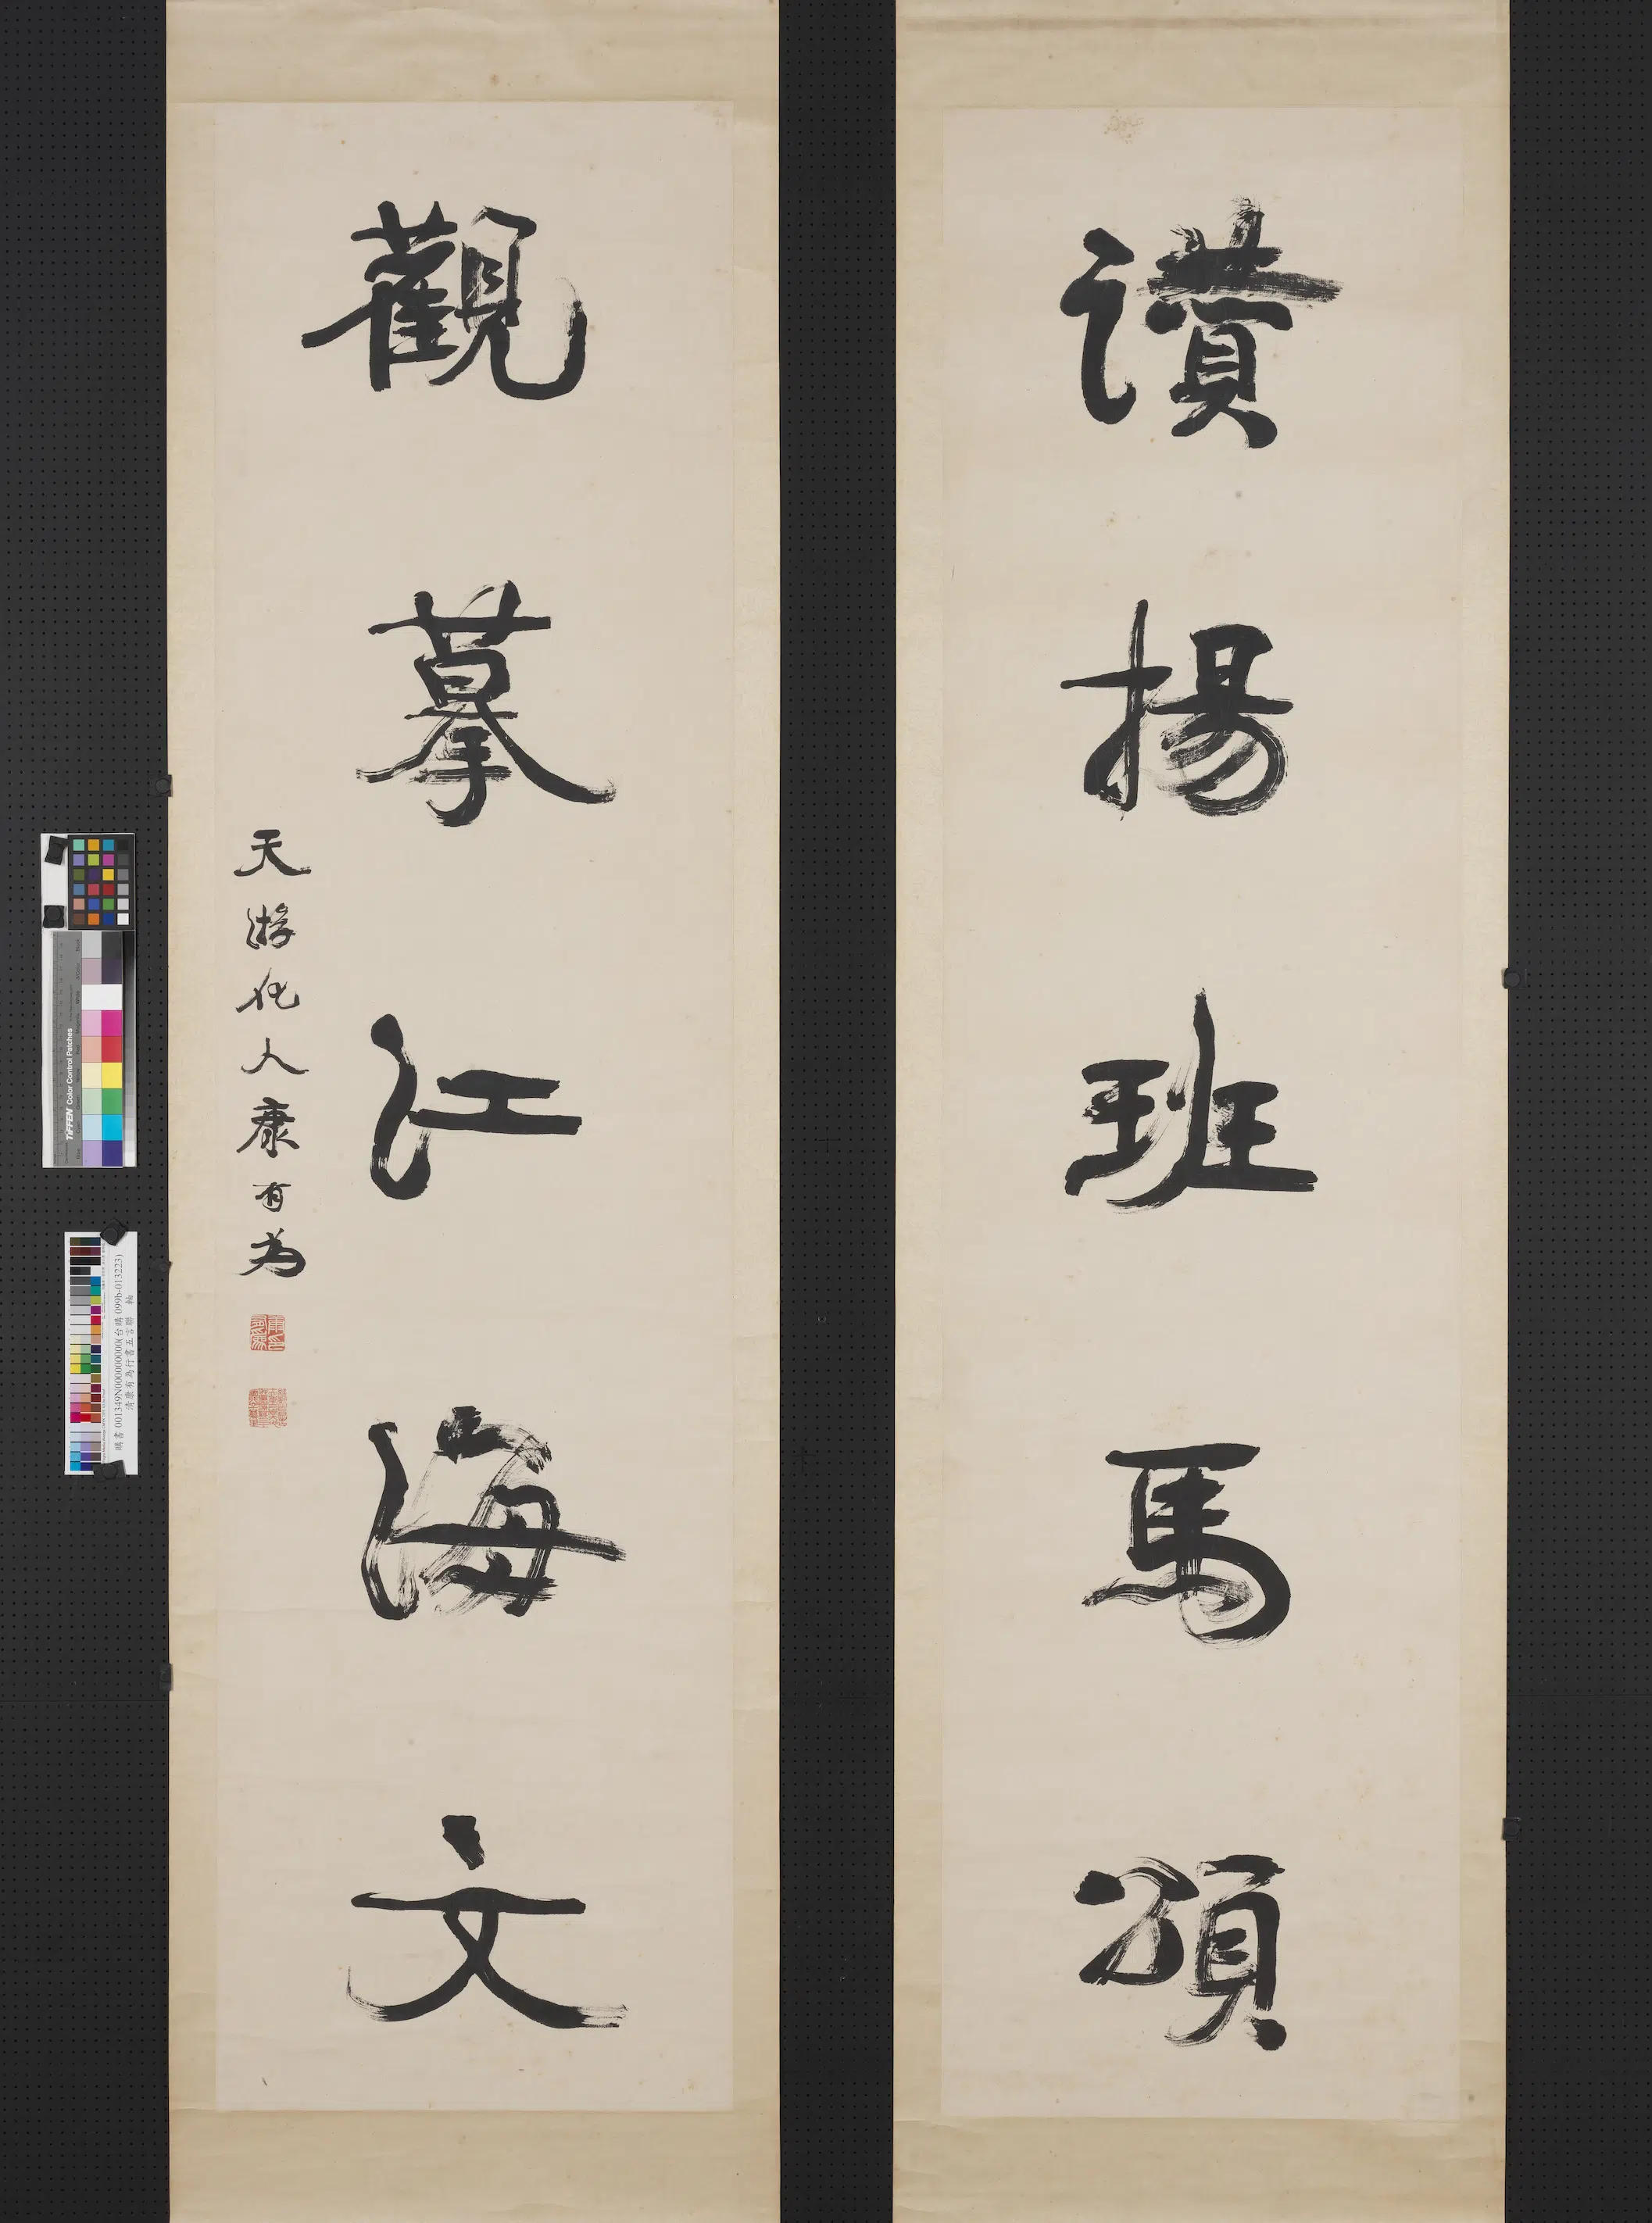 讚揚班馬頌
觀摹江海文
天游化人康有為
購書 001349N000000000(台購 099b-013223)
清康有為行書五言聯 軸
TIFFEN Color Control Patches